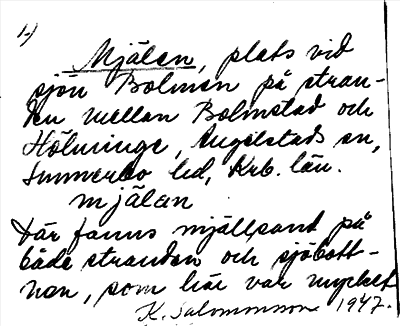 1)
Mjälen, plats vid
sjön Bolmen på stran-
den mellan Bolmstad och
Hölminge, Angelstads sn,
Sunnerbo hd, Krb. län.
mjälen
Där fanns mjällsand på
både stranden och sjöbott-
nen, som här var mycket
K. Salomonsson 1947.